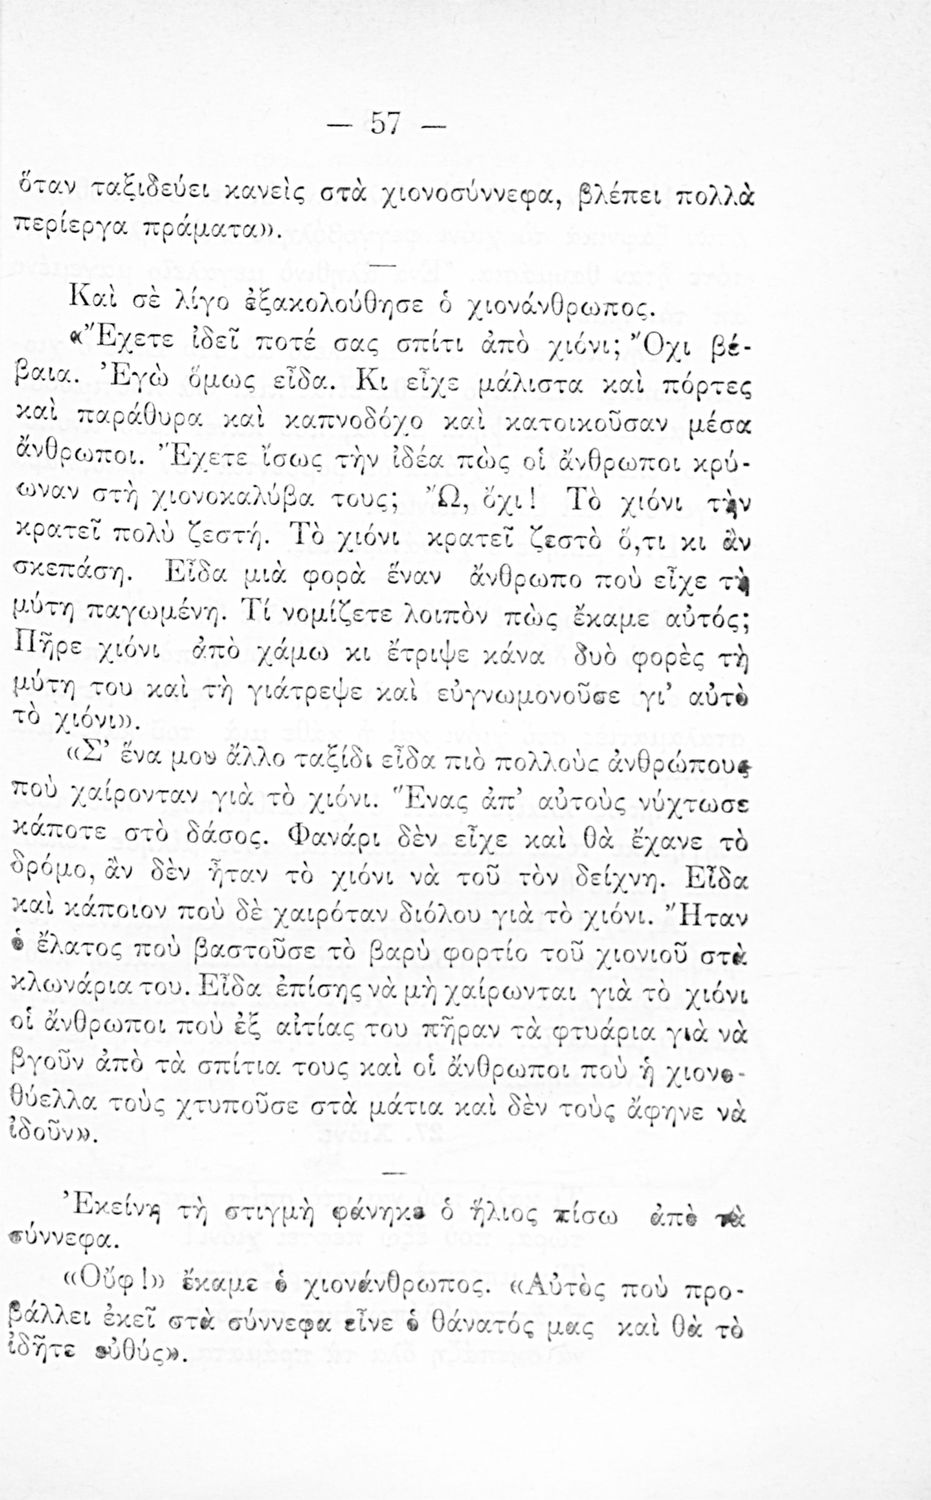 — 57 —
ὅταν ταξιδεύει κανεὶς στὰ χιονοσύννεφα, βλέπει πολλὰ
περίεργα πράματα».
Καὶ σὲ λίγο ἐξακολούθησε ὁ χιονάνθρωπος.
«Ἔχετε ἰδεῖ ποτέ σας σπίτι ἀπὸ χιόνι; Ὄχι βέ-
βαια. Ἐγὼ ὅμως εἶδα. Κι εἶχε μάλιστα καὶ πόρτες
καὶ παράθυρα καὶ καπνοδόχο καὶ κατοικοῦσαν μέσα
ἄνθρωποι. Ἔχετε ἴσως τὴν ἰδέα πὼς οἱ ἄνθρωποι κρύ-
ωναν στὴ χιονοκαλύβα τους; Ὤ, ὄχι! Τὸ χιόνι τὴν
κρατεῖ πολὺ ζεστή. Τὸ χιόνι κρατεῖ ζεστὸ ὅ,τι κι ἂν
σκεπάση. Εἶδα μιὰ φορὰ ἕναν ἄνθρωπο ποὺ εἶχε τὴ
μύτη παγωμένη. Τί νομίζετε λοιπὸν πὼς ἔκαμε αὐτός;
Πῆρε χιόνι ἀπὸ χάμω κι ἔτριψε κάνα δυὸ φορὲς τὴ
μύτη του καὶ τὴ γιάτρεψε καὶ εὐγνωμονοῦσε γι’ αὐτὸ
τὸ χιόνι».
«Σ’ ἕνα μου ἄλλο ταξίδι εἶδα πιὸ πολλοὺς ἀνθρώπους
ποὺ χαίρονταν γιὰ τὸ χιόνι. Ἕνας ἀπ’ αὐτοὺς νύχτωσε
κάποτε στὸ δάσος. Φανάρι δὲν εἶχε καὶ θὰ ἔχανε τὸ
δρόμο, ἂν δὲν ἦταν τὸ χιόνι νὰ τοῦ τὸν δείχνη. Εἶδα
καὶ κάποιον ποὺ δὲ χαιρόταν διόλου γιὰ τὸ χιόνι. Ἦταν
ὁ ἔλατος ποὺ βαστοῦσε τὸ βαρὺ φορτίο τοῦ χιονιοῦ στὰ
κλωνάρια του. Εἶδα ἐπίσης νὰ μὴ χαίρωνται γιὰ τὸ χιόνι
οἱ ἄνθρωποι ποὺ ἐξ αἰτίας του πῆραν τὰ φτυάρια γιὰ νὰ
βγοῦν ἀπὸ τὰ σπίτια τους καὶ οἱ ἄνθρωποι ποὺ ἡ χιονο-
θύελλα τοὺς χτυποῦσε στὰ μάτια καὶ δὲν τοὺς ἄφηνε νὰ
ἰδοῦν».
Ἐκείνη τὴ στιγμὴ φάνηκε ὁ ἥλιος πίσω ἀπὸ τὰ
σύννεφα.
«Οὔφ!» ἔκαμε ὁ χιονάνθρωπος. «Αὐτὸς ποὺ προ-
βάλλει ἐκεῖ στὰ σύννεφα εἶνε ὁ θάνατός μας καὶ θὰ τὸ
ἰδῆτε εὐθύς».